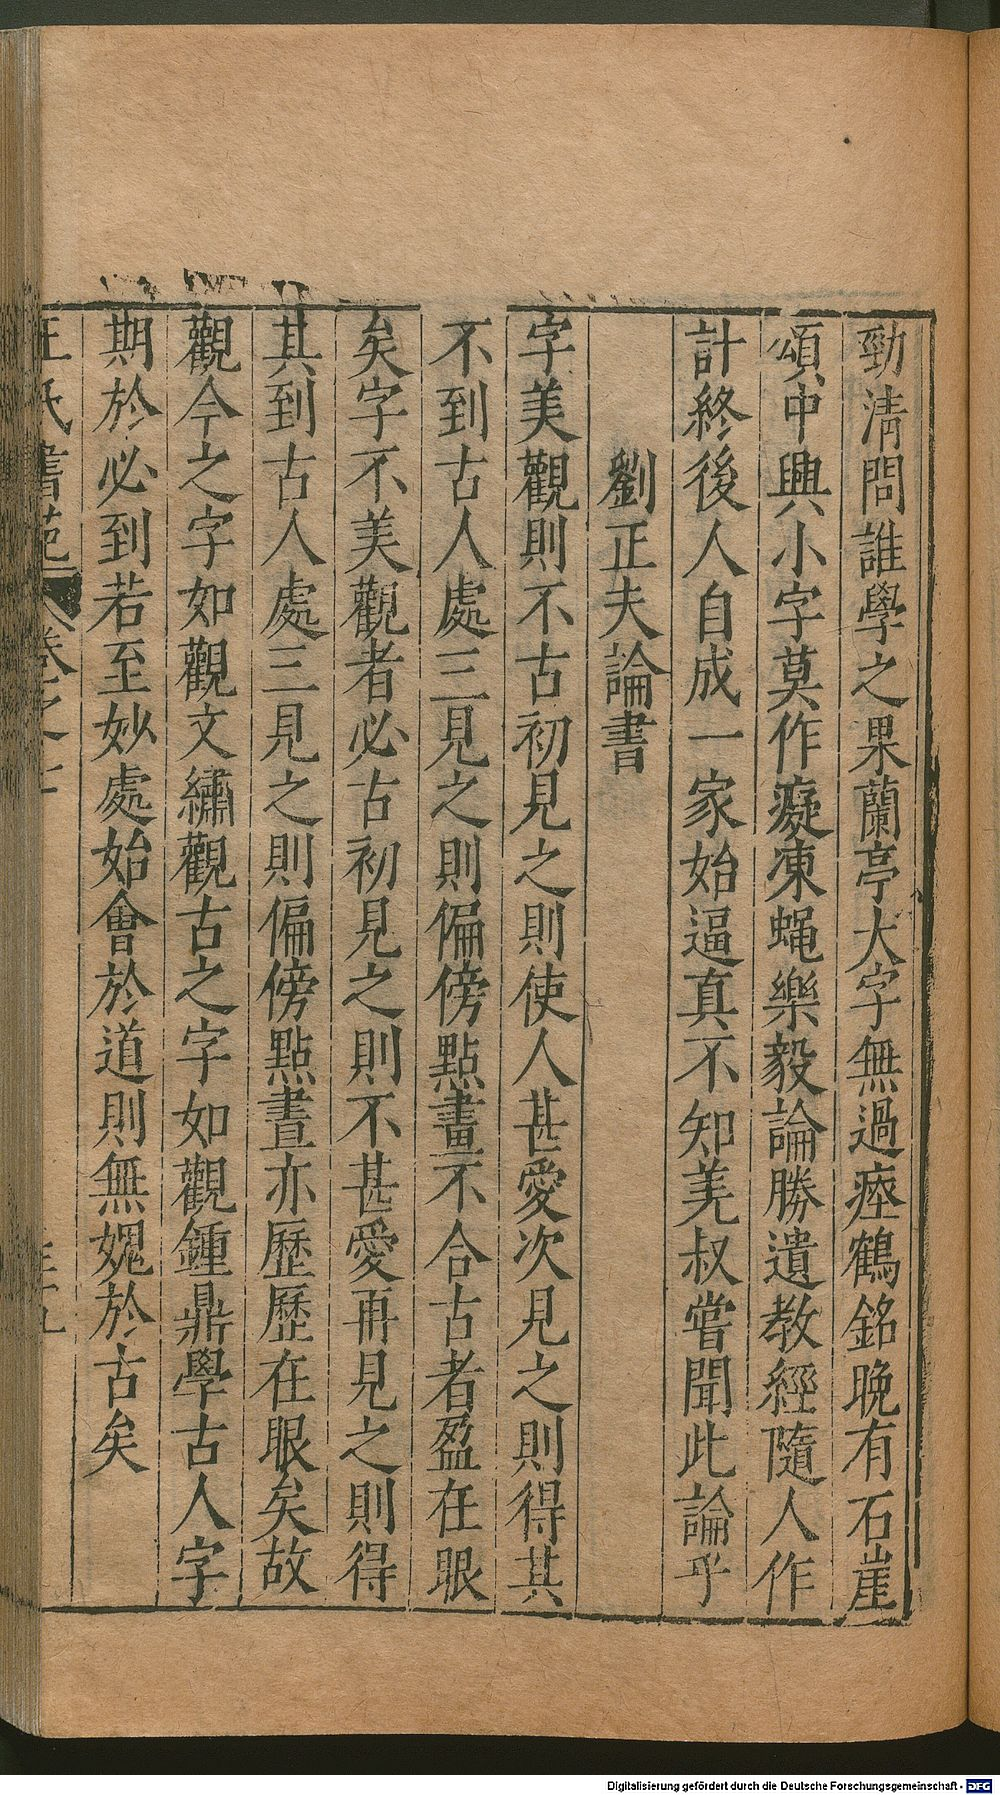 勁淸問誰學之果蘭亭大字無過瘞鶴銘晚有石崖
頌中興小字莫作癡凍蝇樂毅論勝遺教經隨人作
計終後人自成一家始逼真不知羙叔嘗聞此論乎
劉正夫論書
字美觀則不古初見之則使人甚愛次見之則得其
不到古人處三見之則偏傍點畫不合古者盈在眼
矣字不美觀者必古初見之則不甚愛再見之則得
其到古人處三見之則偏傍點晝亦歷歷在眼矣故
觀今之字如觀文繡觀古之字如觀鍾鼎學古人字
期於必到若至妙處始會於道則無媿於古矣
王氏書苑 卷之
Digitalisierung gefördert durch die Deutsche Forschungsgemeinschaft - DFG